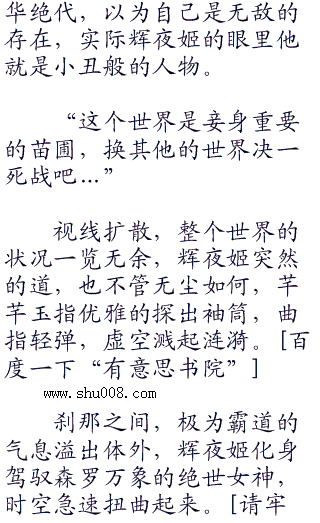 华绝代，以为自己是无敌的
存在，实际辉夜姬的眼里他
就是小丑般的人物。
“这个世界是妾身重要
的苗圃，换其他的世界决一
死战吧...”
视线扩散，整个世界的
状况一览无余，辉夜姬突然
的道，也不管无尘如何，芊
芊玉指优雅的探出袖筒，曲
指轻弹，虚空溅起涟漪。[百
度一下“有意思书院”]
www.shu008.com
刹那之间，极为霸道的
气息溢出体外，辉夜姬化身
驾驭森罗万象的绝世女神，
时空急速扭曲起来。[请牢